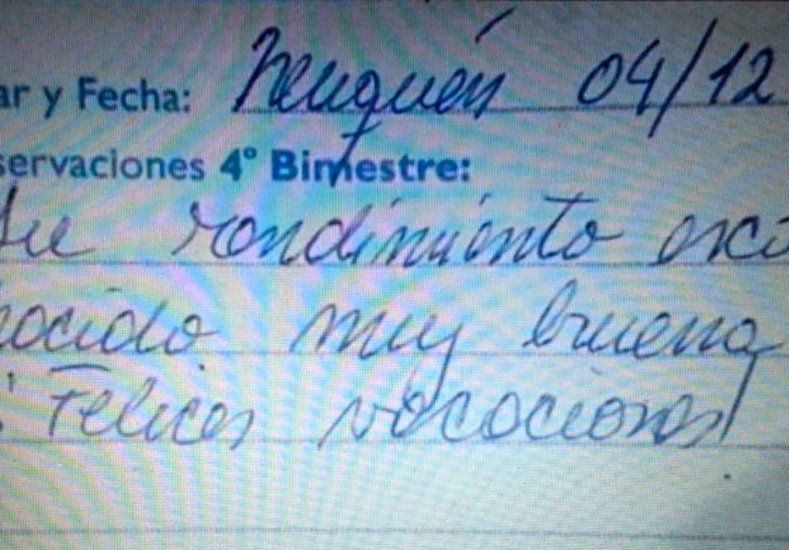 ar y Fecha: Neuquén 04/12
servaciones 4° Bimestre:
Su rendimiento
muy buena
! Felices vacaciones!